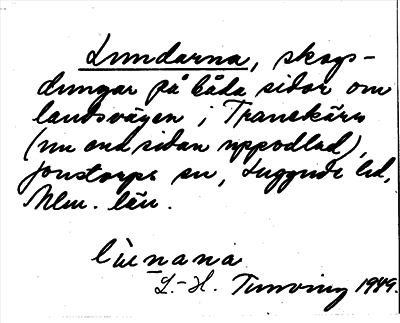 Lundarna, skogs-
dungar på båda sidor om
landsvägen i Transkärr
(nu ena sidan uppodlad),
Jonstorps sn, Luggude hd,
Mlm. län.
lùnana
L.-H. 1989.